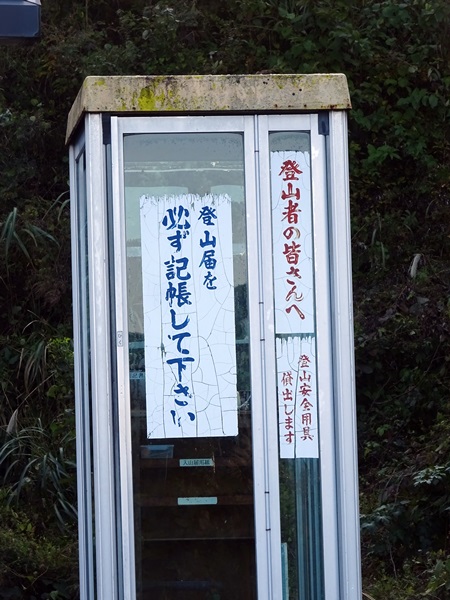 登山者の皆さんへ
登山届を
必ず記帳して下さい
登山安全用具
貸出します